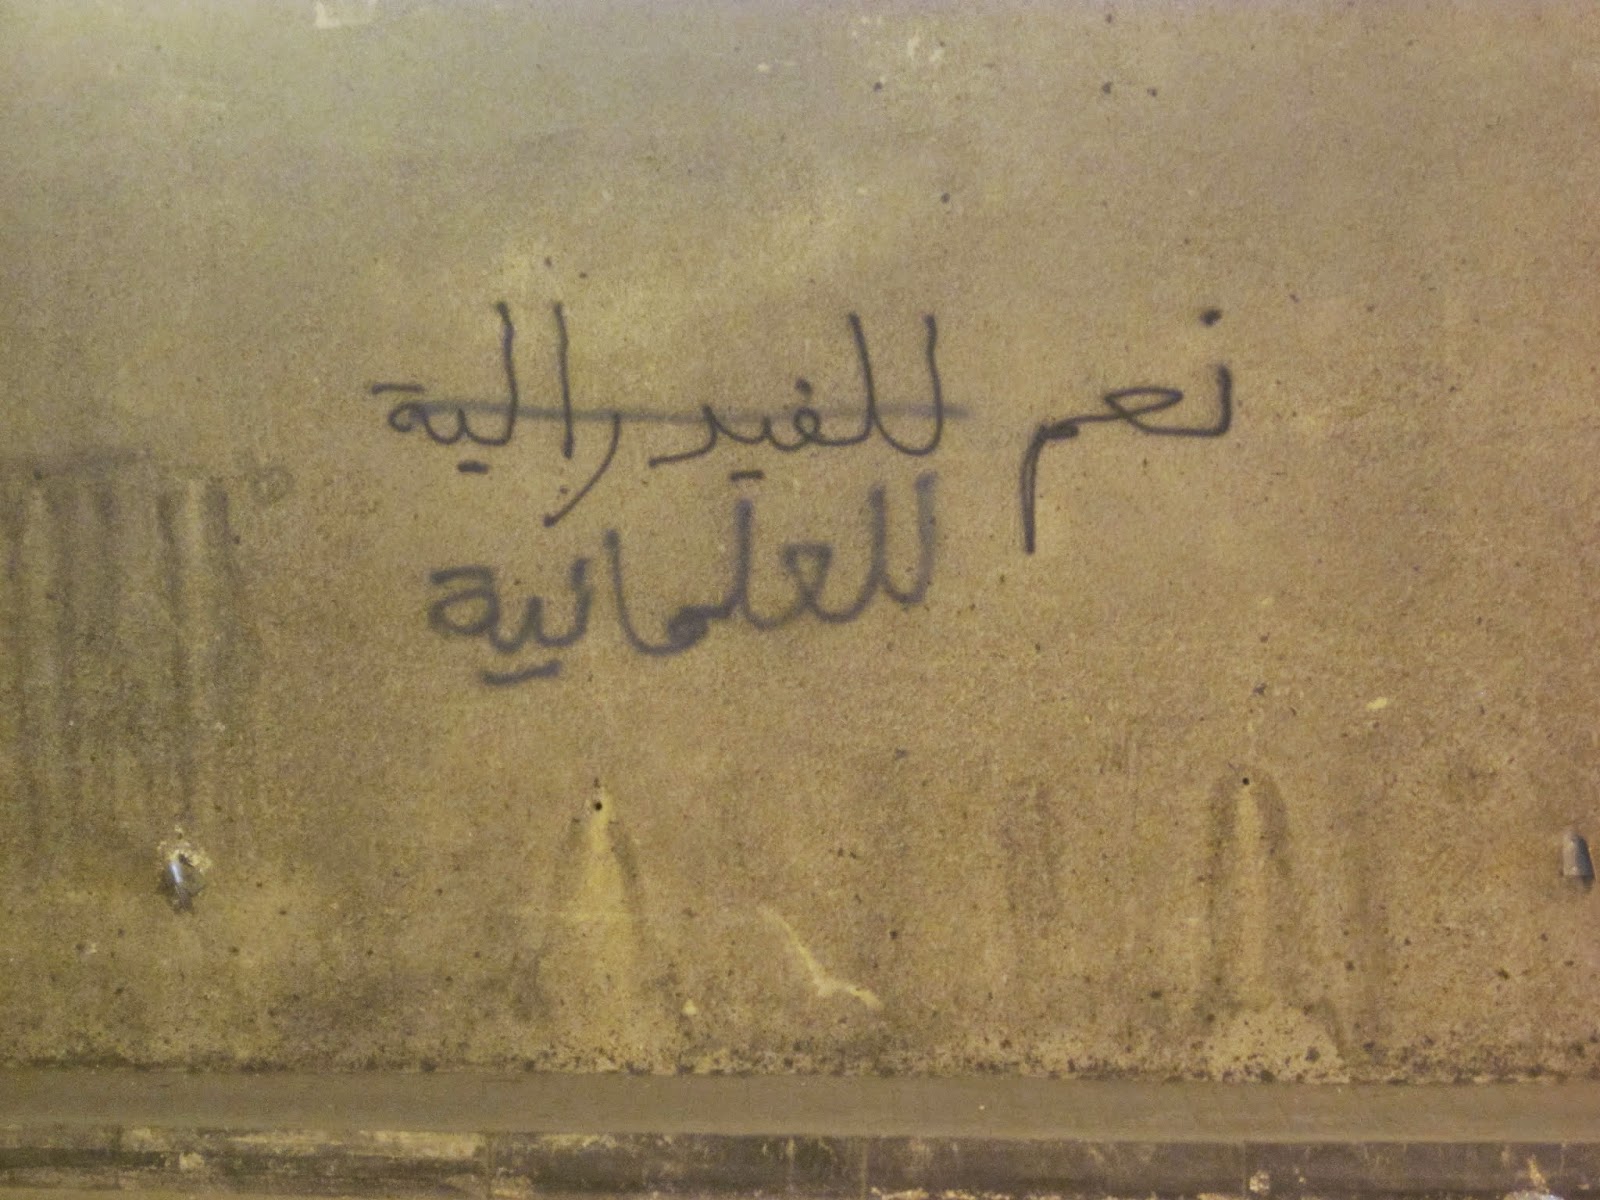 نعم للفيدرالية
للعلمانية